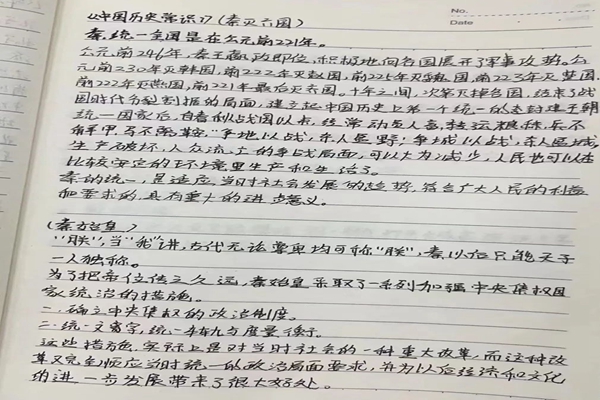 No.
Date
《中国历史常识》(秦灭六国)
秦统一全国是在公元前221年。
公元前246年,秦王嬴政即位,积极地向各国展开了军事攻势。公
元前230年灭韩国,前222年灭赵国,前225年灭魏国,前223年灭楚国,
前222年灭燕国,前221年最后灭齐国。十年之间,次第灭掉各国,结束了战
国时代分裂割据的局面,建立起中国历史上第一个统一的封建王朝
统一国家后,自春秋战国以来,经常动员人畜,转运粮秣,兵不
解甲,马不离鞍,“争地以战,杀人盈野;争城以战,杀人盈城
生产破坏,人众流亡的争战局面,可以大为减少,人民也可以在
比较安定的环境里生产和生活了。
秦的统一,是适应当时社会发展的趋势,符合广大人民的利益
和要求的,具有重大的进步意义。
(秦始皇)
“朕”,当“我”讲,古代无论尊卑均可称“朕”,秦以后只能天子
一人独称。
为了把帝位传之久远,秦始皇采取了一系列加强中央集权国
家统治的措施。
一.确立中央集权的政治制度。
二.统一文字,统一车轨与度量衡。
这些措施,实际上是对当时社会的一种重大改革,而这种改
革又完全顺应当时统一的政治局面要求,并为以后经济和文化
的进一步发展带来了很大好处。